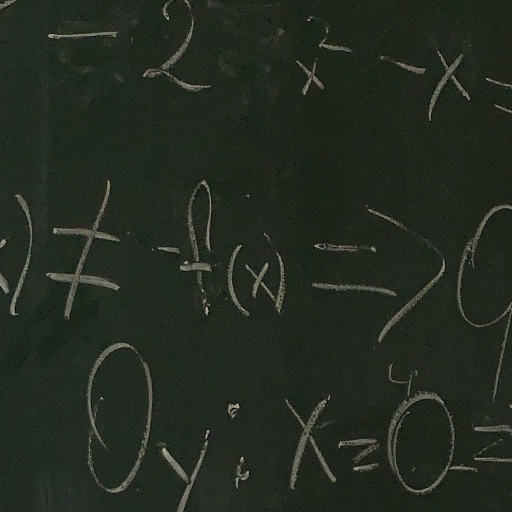 - 2 x² - x =
x) ≠ -f(x) ⇒ 9
0y: x = 0 =